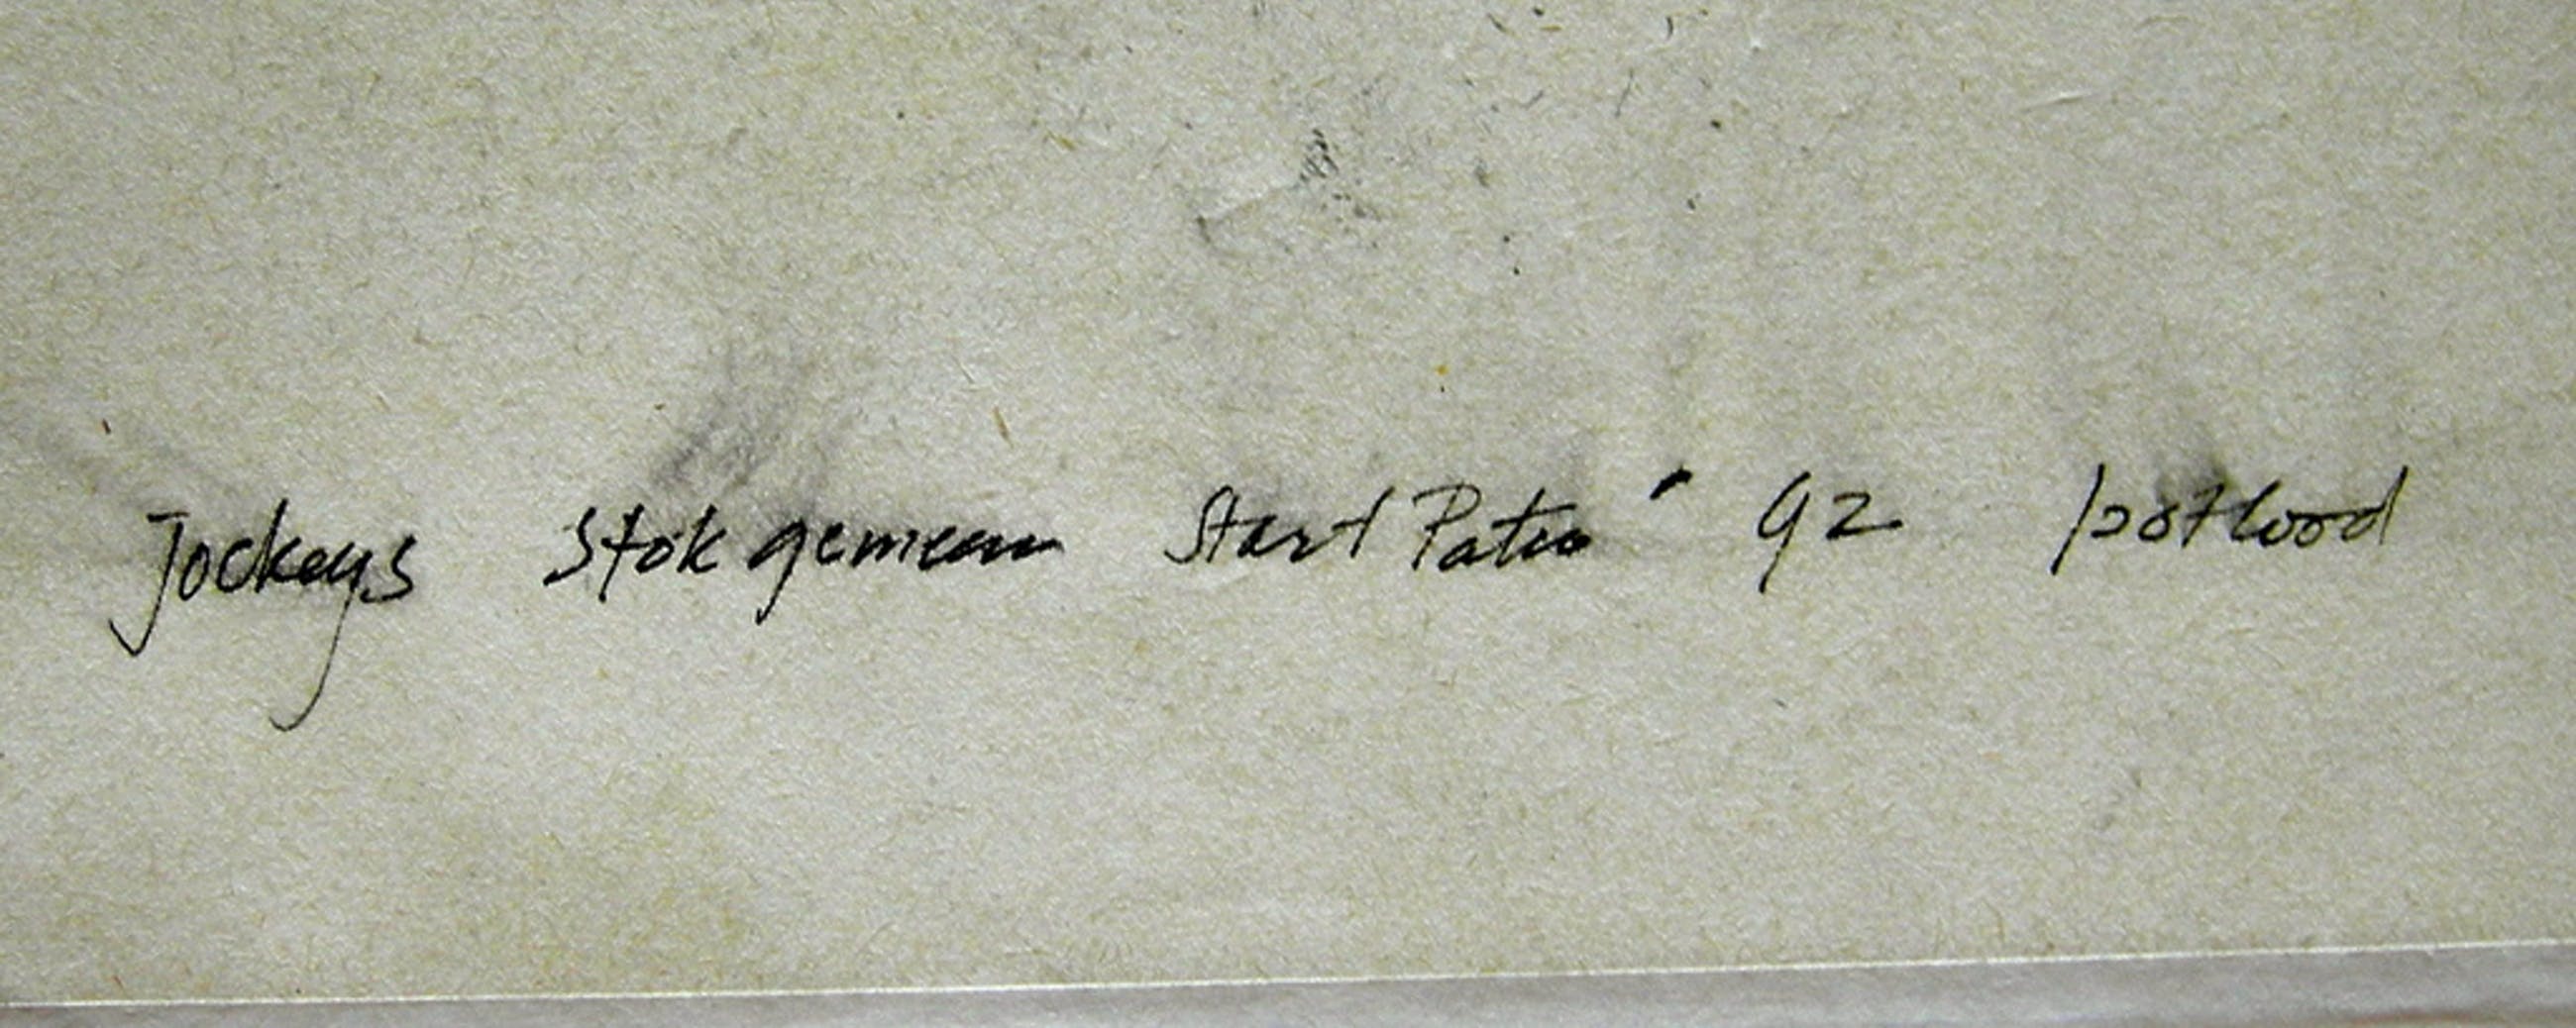 Jockeys Stok gemeen Start Patio '92 potlood